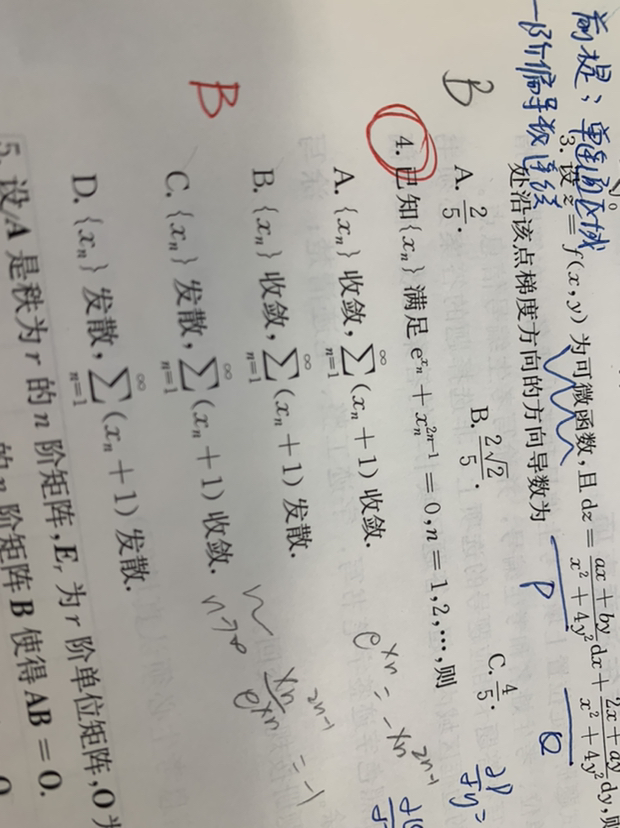 前提：单连通区域
一阶偏导数连续
3. 设 z = f(x, y) 为可微函数, 且 dz = \frac{ax + by}{x^2 + 4y^2}dx + \frac{2x + ay}{x^2 + 4y^2}dy, 则
处沿该点梯度方向的方向导数为
P Q
B
A. \frac{2}{5}. B. \frac{2\sqrt{2}}{5}. C. \frac{4}{5}.
4. 已知{x_n} 满足 e^{x_n} + x_n^{2n-1} = 0, n = 1, 2, …, 则
A. {x_n} 收敛, \sum_{n=1}^{∞}(x_n + 1) 收敛.
e^{x_n} = -x_n^{2n-1}
B. {x_n} 收敛, \sum_{n=1}^{∞}(x_n + 1) 发散.
B
C. {x_n} 发散, \sum_{n=1}^{∞}(x_n + 1) 收敛.
n→∞ \frac{x_n^{2n-1}}{e^{x_n}} = -1
D. {x_n} 发散, \sum_{n=1}^{∞}(x_n + 1) 发散.
5. 设 A 是秩为 r 的 n 阶矩阵, E_r 为 r 阶单位矩阵, O 为
的 n 阶矩阵 B 使得 AB = O.